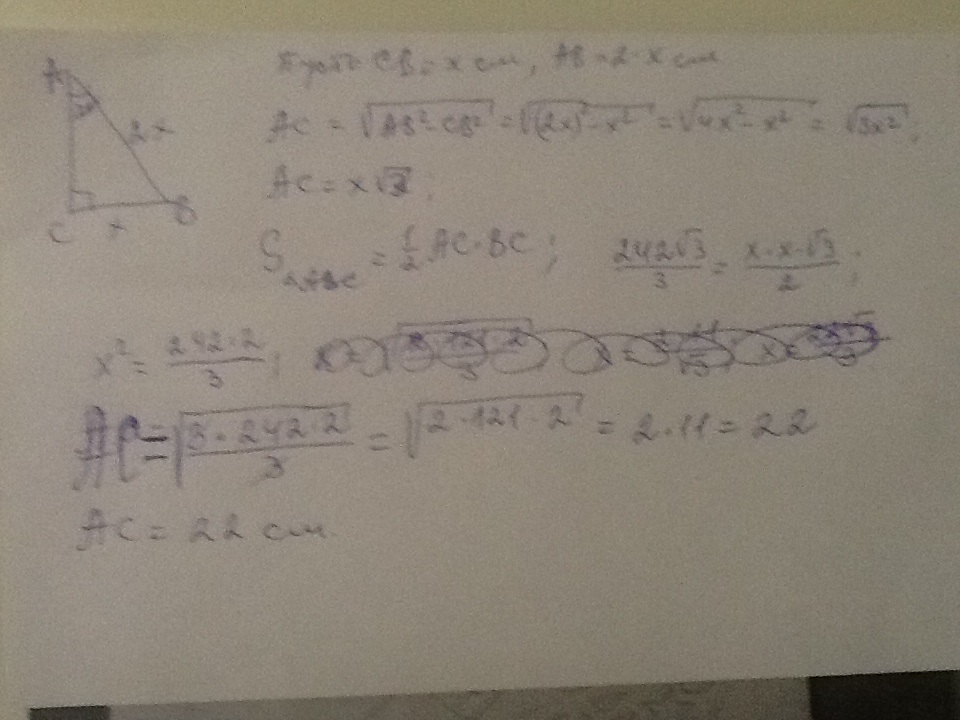 Пусть CB = x см, AB = 2·x см
A
2x
C
x
B
AC = √(AB² - CB²) = √((2x)² - x²) = √(4x² - x²) = √(3x²);
AC = x√3;
S△ABC = 1/2 AC·BC; 242√3/3 = x·x·√3/2;
x² = 242·2/3;
AC = √(3·242·2/3) = √(2·121·2) = 2·11 = 22
AC = 22 см.